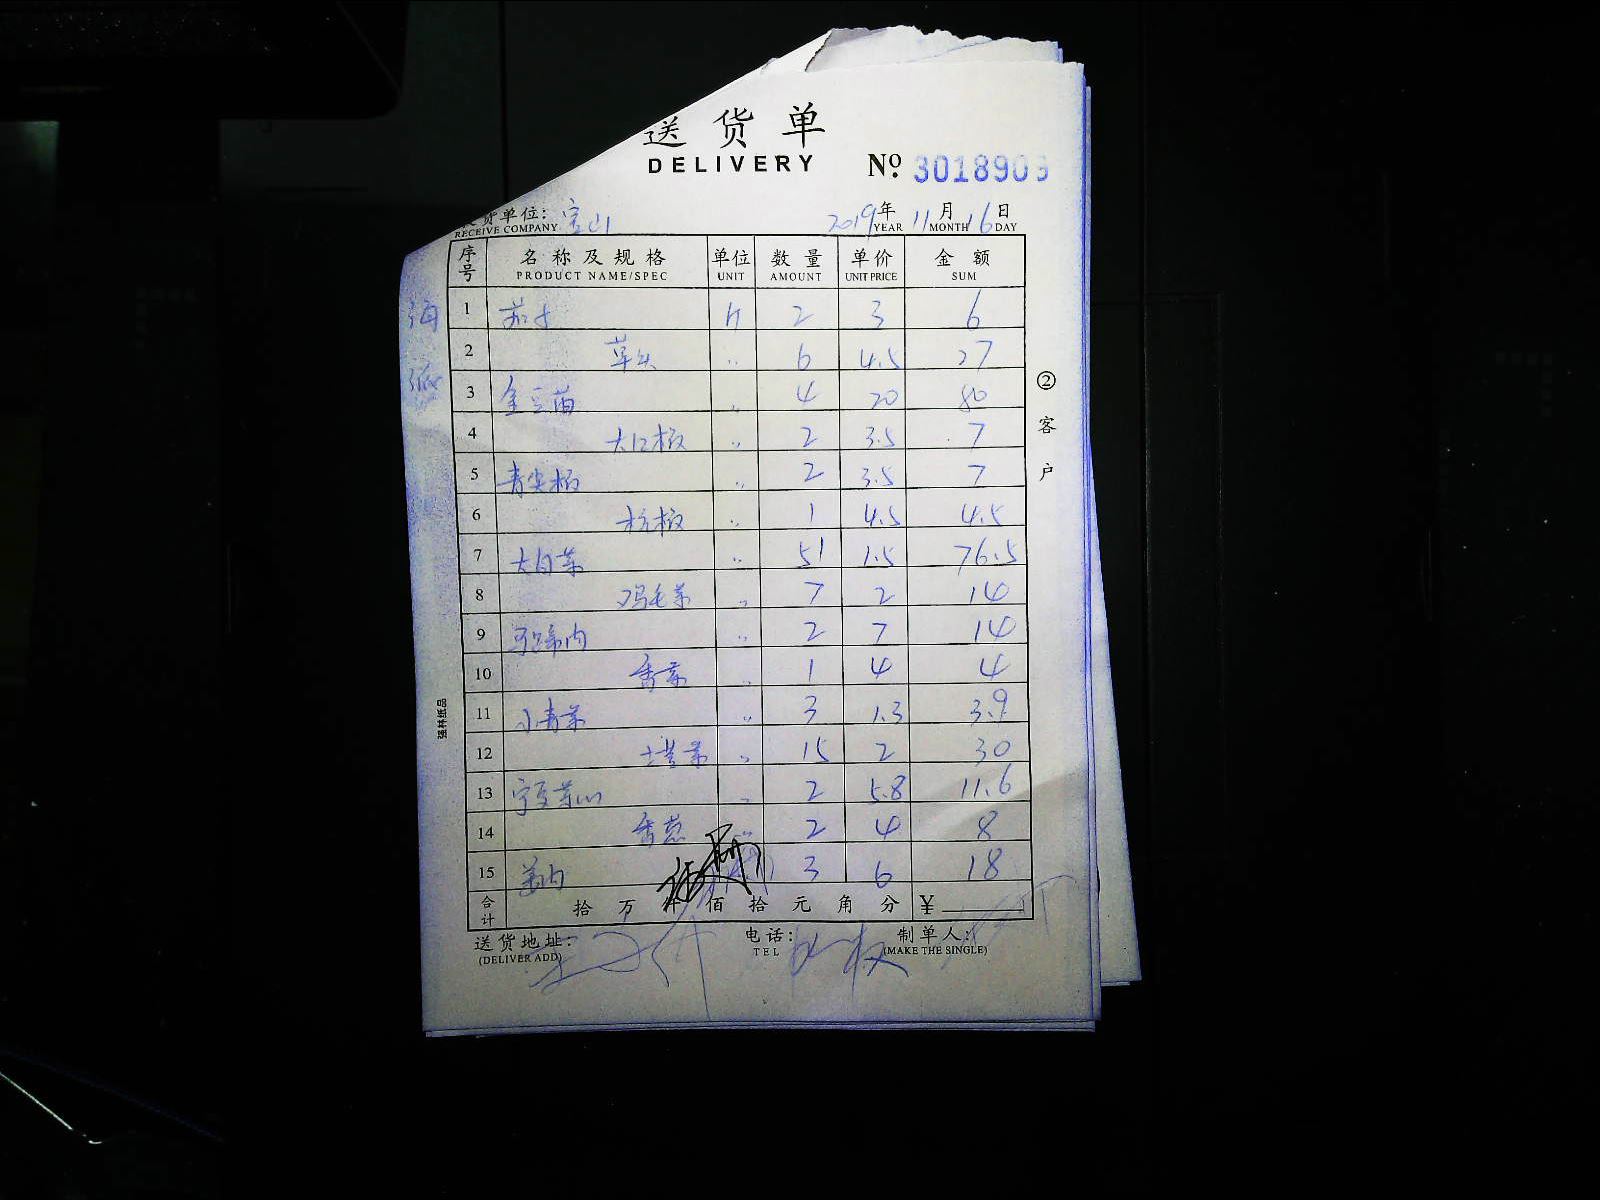 送货单
DELIVERY
№ 3018909
货单位: 宝山 2019年 11月 16日
RECEIVE COMPANY YEAR MONTH DAY
序号 名称及规格 单位 数量 单价 金额
PRODUCT NAME/SPEC UNIT AMOUNT UNIT PRICE SUM
1 茄子 斤 2 3 6
2 草头 〃 6 4.5 27
3 金豆苗 〃 4 20 80
4 大红椒 〃 2 3.5 7
5 青尖椒 〃 2 3.5 7
6 杭椒 〃 1 4.5 4.5
7 大白菜 〃 51 1.5 76.5
8 鸡毛菜 〃 7 2 14
9 〃 2 7 14
10 香菜 〃 1 4 4
11 小青菜 〃 3 1.3 3.9
12 塔菜 〃 15 2 30
13 宁夏菜心 〃 2 5.8 11.6
14 香葱 〃 2 4 8
15 姜肉 3 6 18
合计 拾 万 仟 佰 拾 元 角 分 ¥
送货地址: 电话: 制单人:
(DELIVER ADD) TEL (MAKE THE SINGLE)
② 客户
海
强林纸品